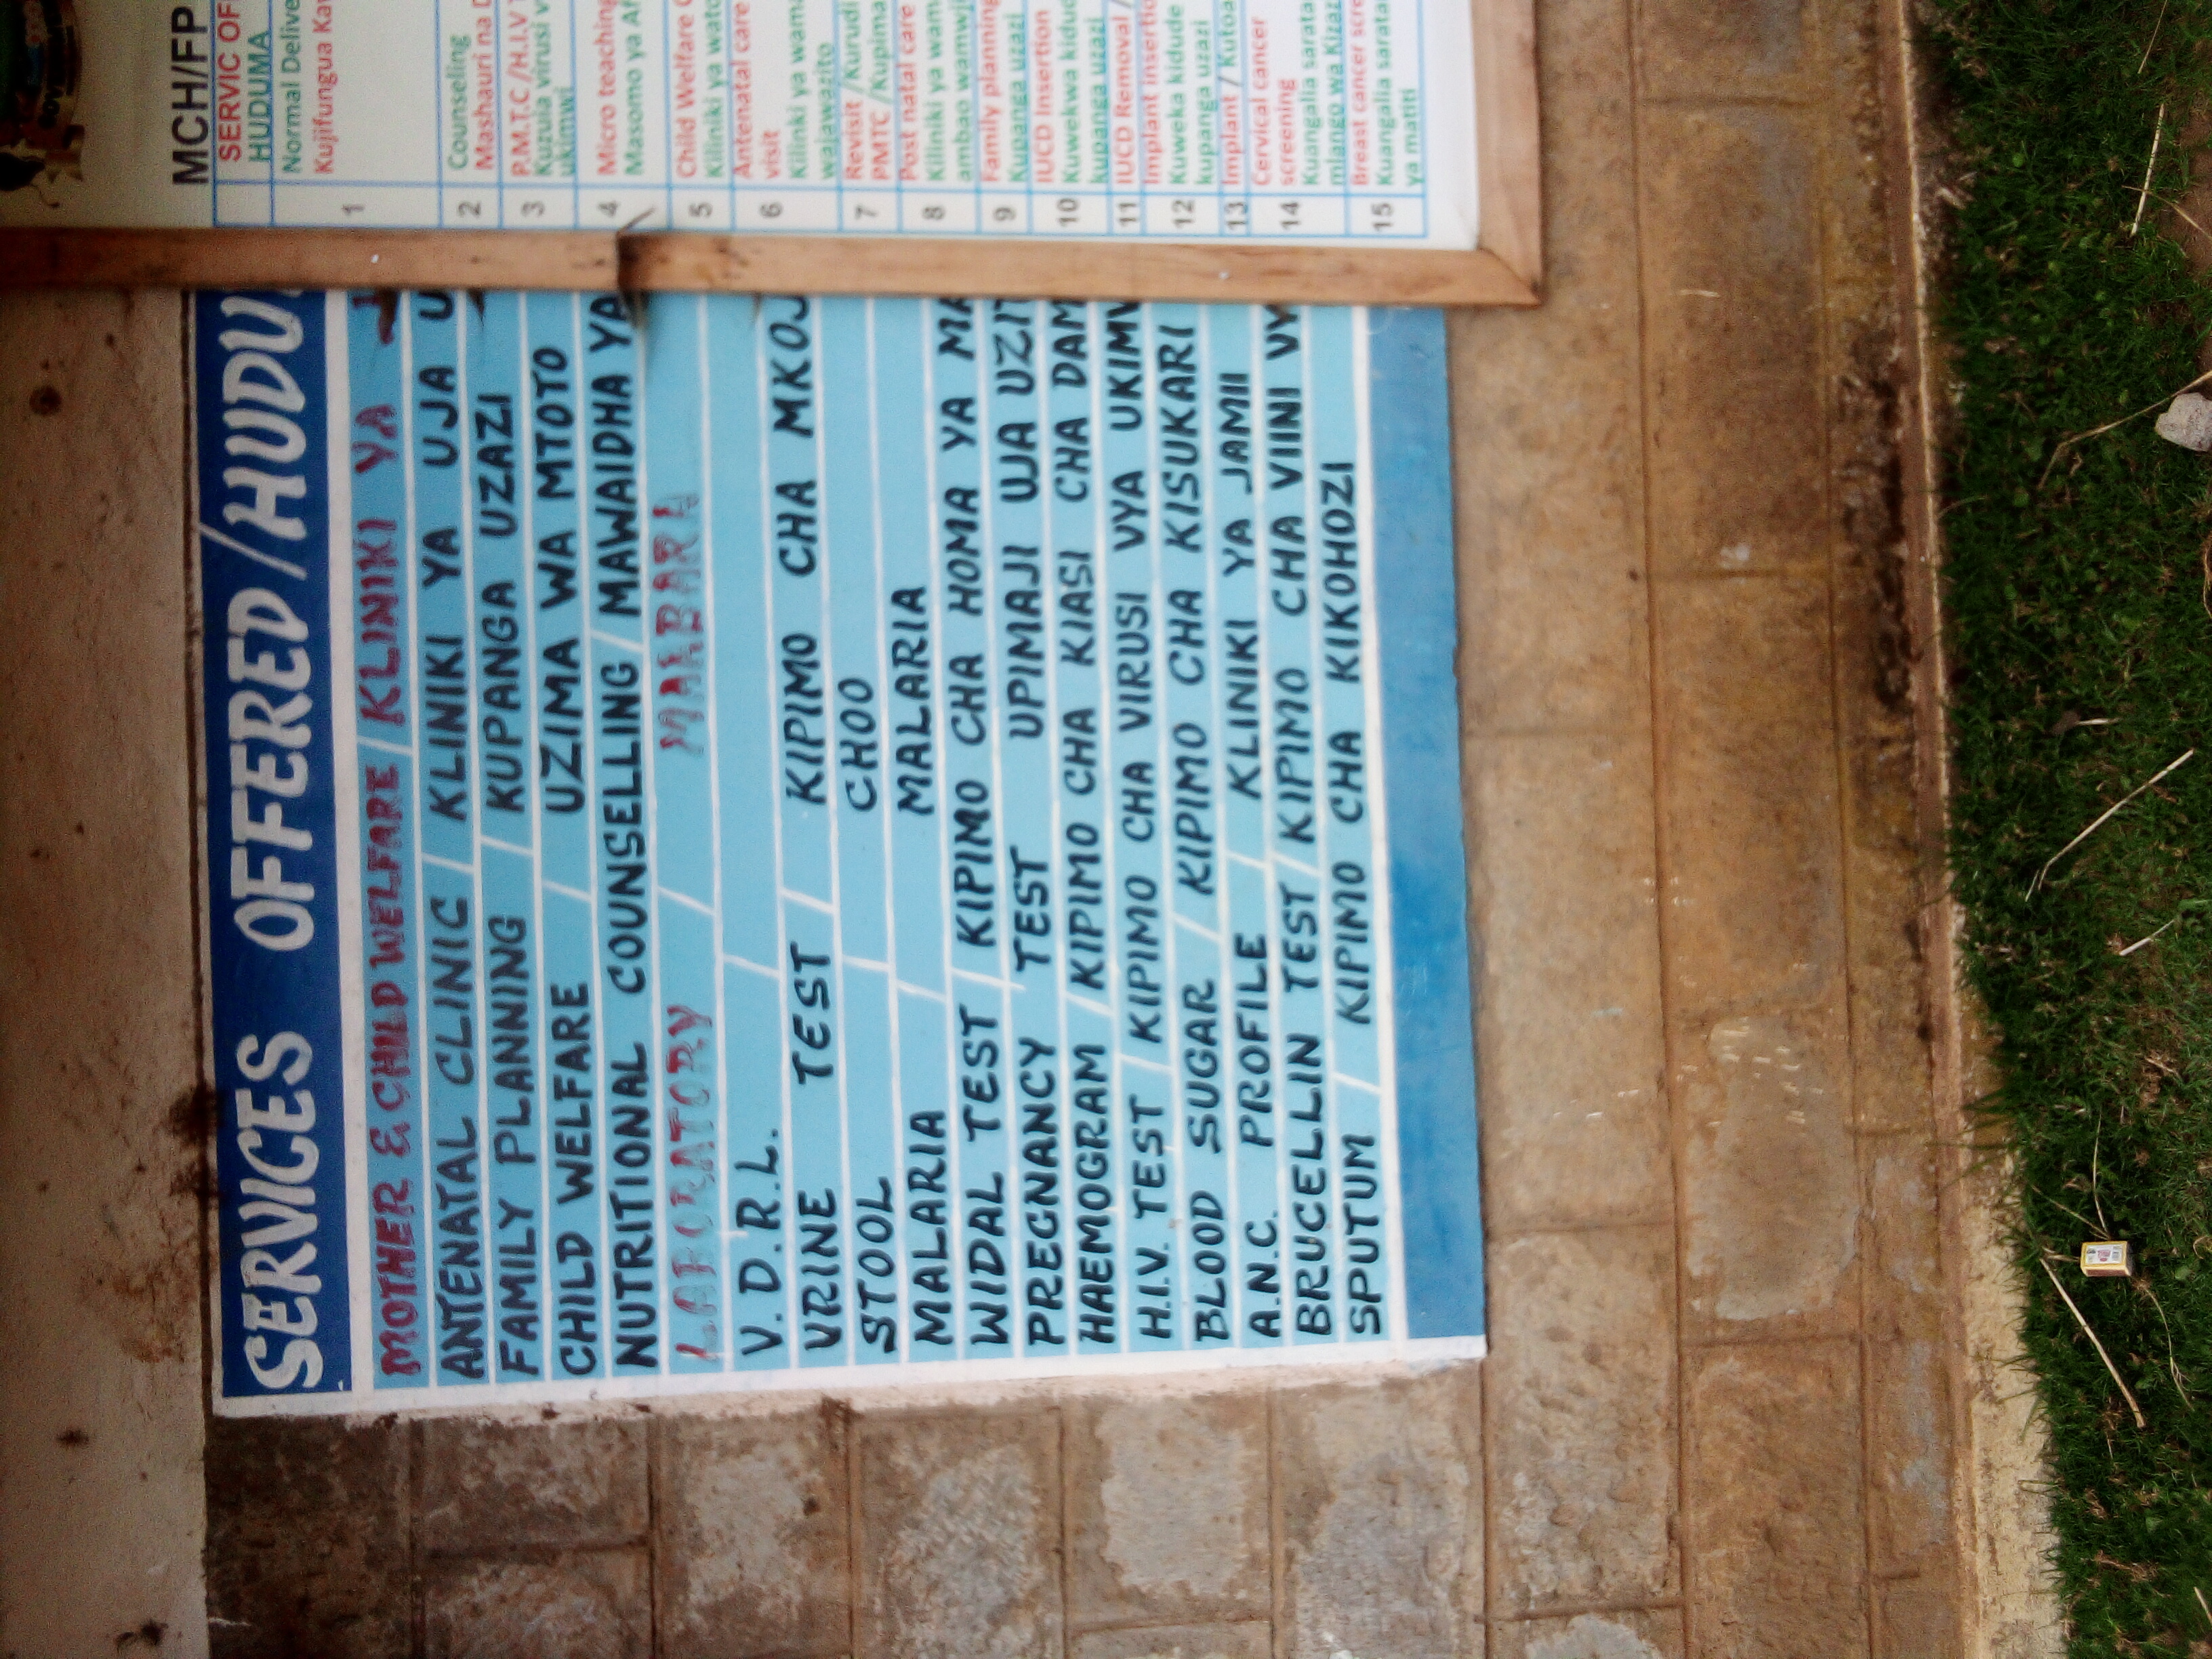 SERVICES OFFERED/HUDU
MOTHER & CHILD WELFARE/KLINIKI YA
ANTENATAL CLINIC / KLINIKI YA UJA U
FAMILY PLANNING / KUPANGA UZAZI
CHILD WELFARE / UZIMA WA MTOTO
NUTRITIONAL COUNSELLING/MAWAIDHA YA
LABORATORY / MAABARA
V.D.R.L. /
URINE TEST / KIPIMO CHA MKOJ
STOOL / CHOO
MALARIA / MALARIA
WIDAL TEST / KIPIMO CHA HOMA YA MA
PREGNANCY TEST UPIMAJI UJA UZIT
HAEMOGRAM / KIPIMO CHA KIASI CHA DAM
H.I.V. TEST / KIPIMO CHA VIRUSI VYA UKIMW
BLOOD SUGAR / KIPIMO CHA KISUKARI
A.N.C. PROFILE / KLINIKI YA JAMII
BRUCELLIN TEST / KIPIMO CHA VIINI VY
SPUTUM / KIPIMO CHA KIKOHOZI
MCH/FP
SERVIC OF
HUDUMA
1
Normal Delive
Kujifungua Ka
2
Counseling
Mashauri na D
3
P.M.T.C /H.I.V T
Kuzuia virusi v
ukimwi
4
Micro teaching
Masomo ya Af
5
Child Welfare C
Kiliniki ya wato
6
Antenatal care
visit
Kilinki ya wama
wajawazito
7
Revisit /Kurudi
PMTC /Kupima
8
Post natal care
Kiliniki ya wam
ambao wamwji
9
Family planning
Kupanga uzazi
10
IUCD Insertion
Kuwekwa kidud
kupanga uzazi
11
IUCD Removal /
12
Implant insertio
Kuweka kidude
kupanga uzazi
13
Implant / Kutoa
14
Cervical cancer
screening
Kuangalia sarata
mlango wa Kizaz
15
Breast cancer scre
Kuangalia sarata
ya matiti